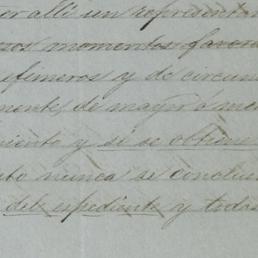 allí un representan
momentos favora
efimeros y de circuns
mente, de mayor ó me
miento y si se obtiene
nunca se conclui
del espediente y todas